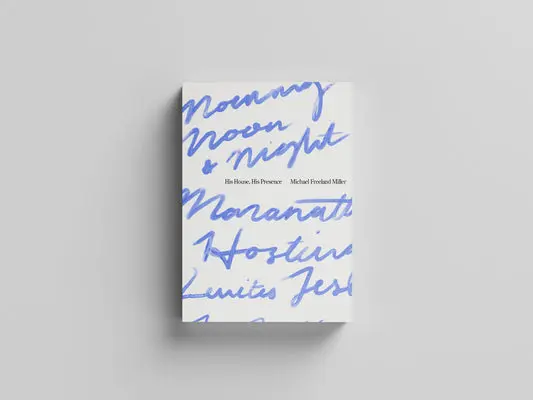 Morning
Noon
& Night
His House, His Presence Michael Freeland Miller
Maranat
Hosting
Levites Jes